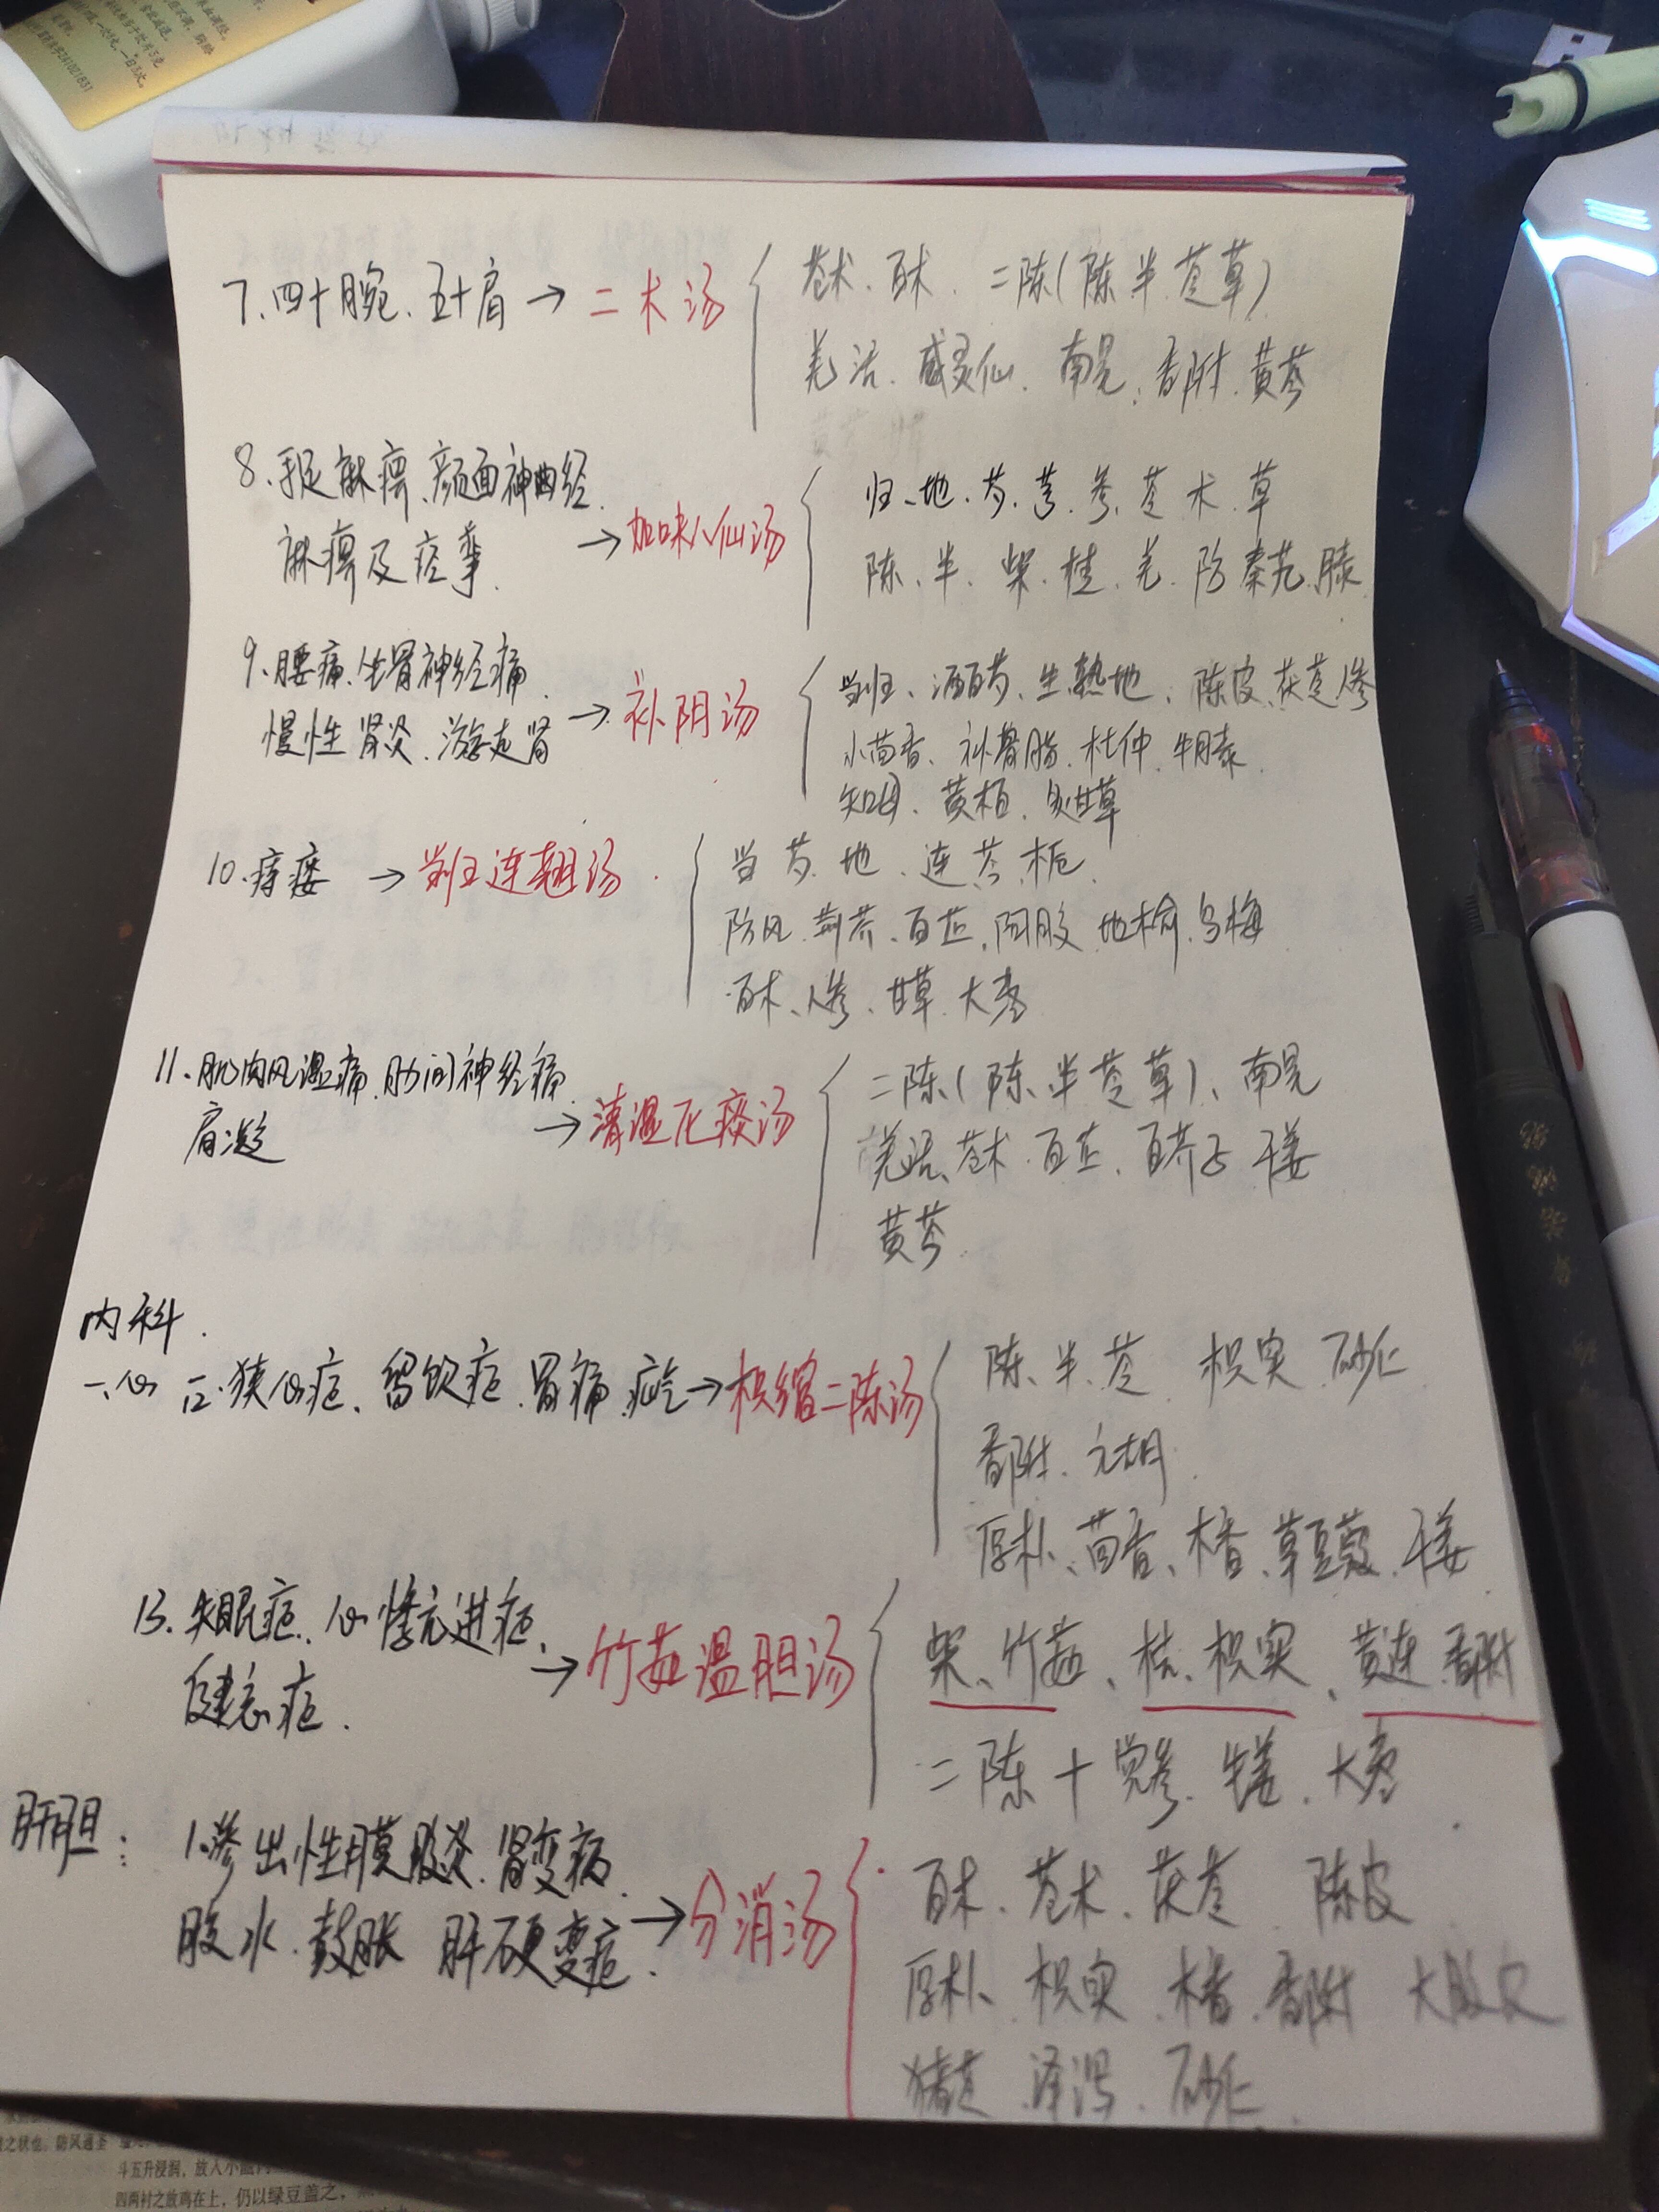 7、四十腕、五十肩→二术汤
苍术、白术、二陈(陈、半、苓、草)
羌活、威灵仙、南星、香附、黄芩
8、手足麻痹、颜面神经
麻痹及痉挛→加味八仙汤
归、地、芍、芎、参、苓、术、草
陈、半、柴、桂、羌、防、秦艽、膝
9、腰痛、坐骨神经痛、
慢性肾炎、游走肾→补阴汤
当归、酒白芍、生熟地、陈皮、茯苓、人参
小茴香、补骨脂、杜仲、牛膝
知母、黄柏、炙甘草
10、痔瘘→当归连翘汤
当、芍、地、连、芩、栀
防风、荆芥、白芷、阿胶、地榆、乌梅
白术、人参、甘草、大枣
11、肌肉风湿痛、肋间神经痛、
肩凝→清湿化痰汤
二陈(陈、半、苓、草)、南星
羌活、苍术、白芷、白芥子、干姜
黄芩
内科.
一、心 12、狭心症、留饮症、胃痛、疝气→枳缩二陈汤
陈、半、苓、枳实、砂仁
香附、元胡
厚朴、茴香、木香、草豆蔻、干姜
13、失眠症、心悸亢进症、
健忘症.→竹茹温胆汤
柴、竹茹、桔、枳实、黄连、香附
二陈+党参、生姜、大枣
肝胆: 1、渗出性腹膜炎、肾变病、
腹水、鼓胀、肝硬变症.→分消汤
白术、苍术、茯苓、陈皮
厚朴、枳实、木香、香附、大腹皮
猪苓、泽泻、砂仁
斗五升浸润，放入小
四两衬之放鸡在上，仍以绿豆盖之，